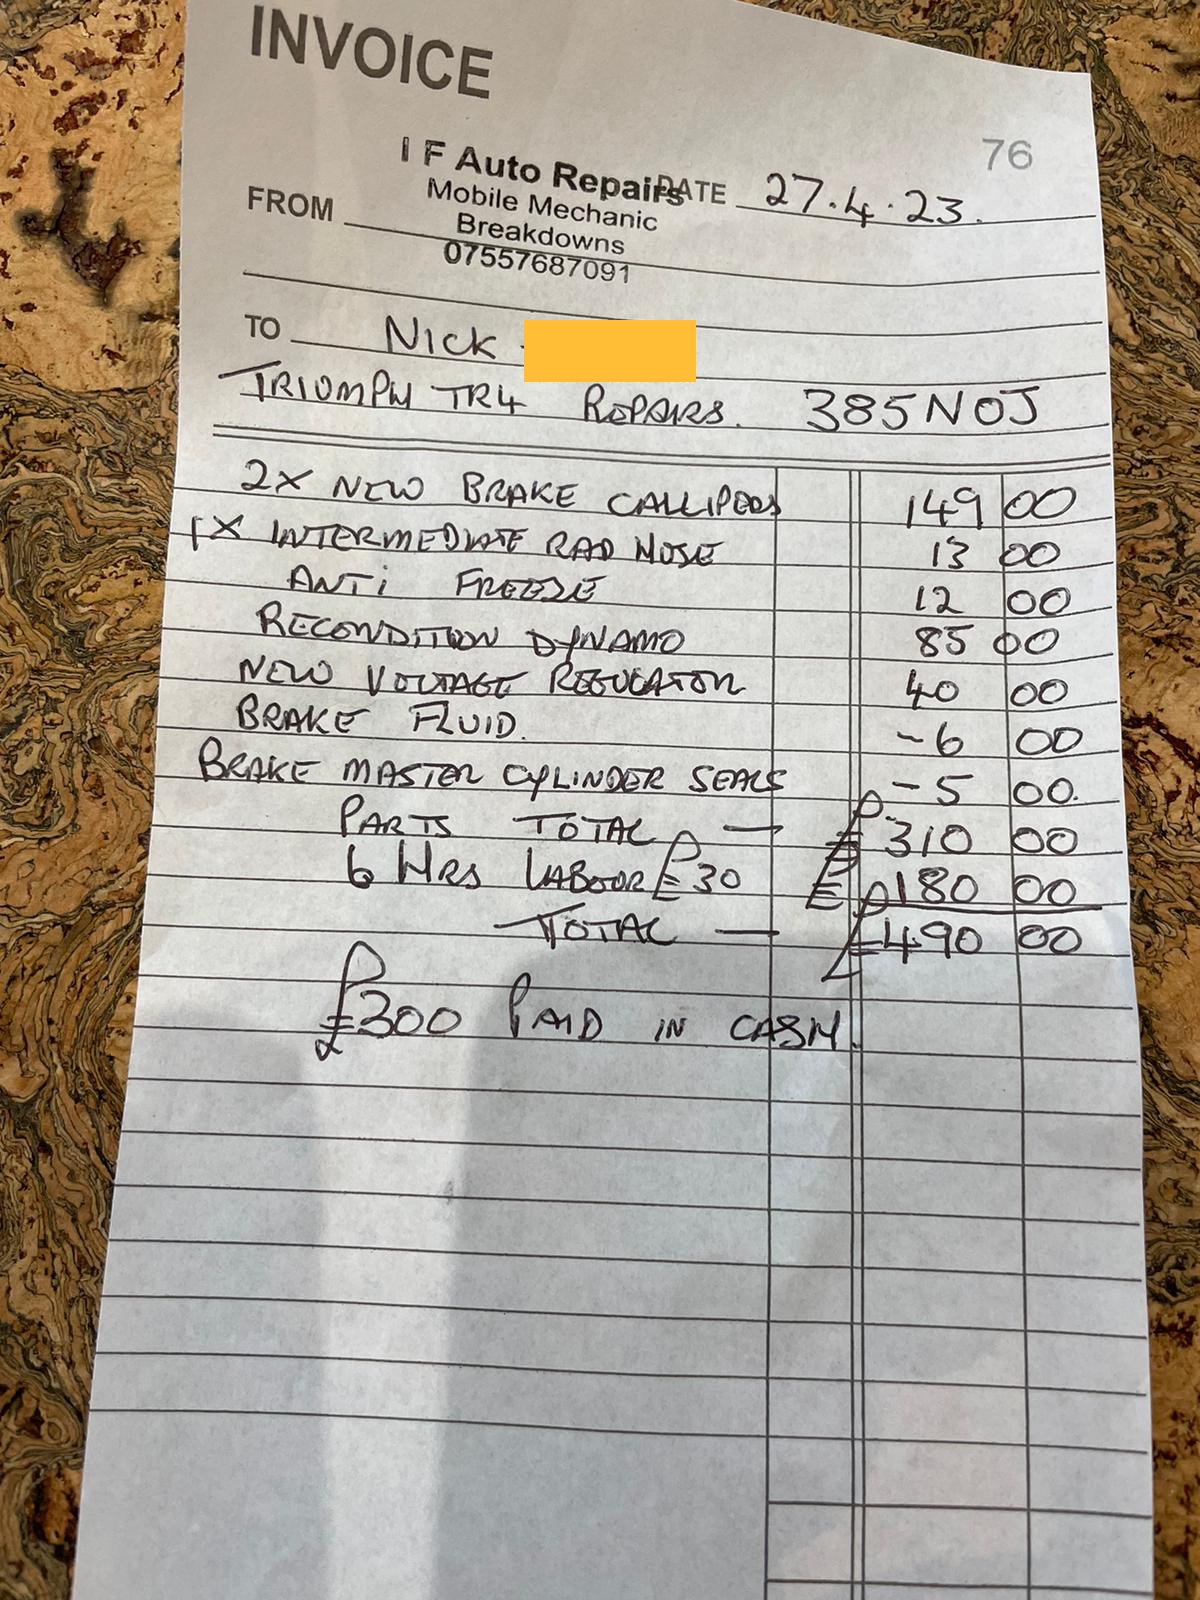 INVOICE
76
I F Auto Repairs
DATE 27.4.23.
Mobile Mechanic
FROM
Breakdowns
07557687091
TO NICK
TRIUMPH TR4 REPAIRS. 385NOJ
2X NEW BRAKE CALLIPERS 149 00
1X INTERMEDIATE RAD HOSE 13 00
ANTi FREEZE 12 00
RECONDITION DYNAMO 85 00
NEW VOLTAGE REGULATOR 40 00
BRAKE FLUID. - 6 00
BRAKE MASTER CYLINDER SEALS - 5 00.
PARTS TOTAL — £310 00
6 HRS LABOUR £30 £180 00
TOTAL — £490 00
£300 PAID IN CASH.